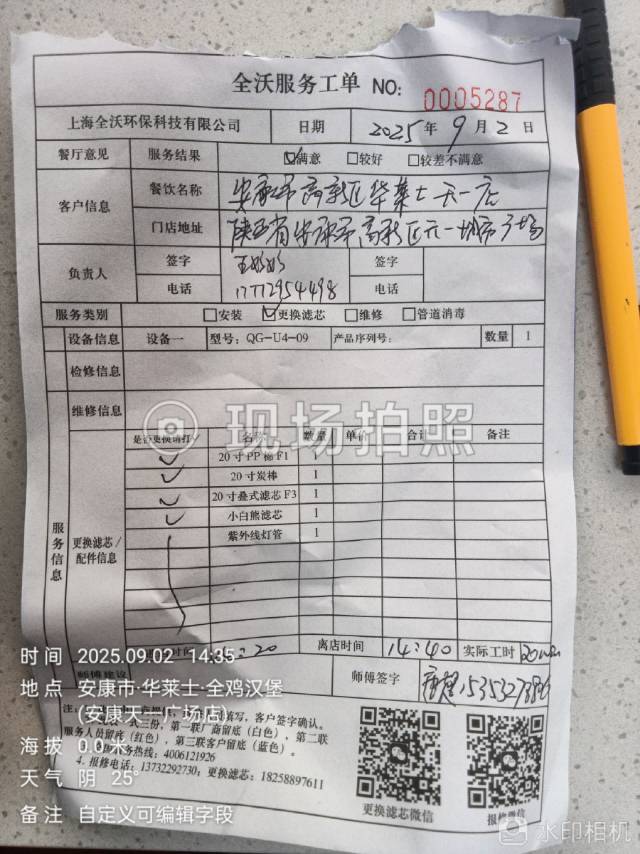 全沃服务工单 NO: 0005287
上海全沃环保科技有限公司 日期 2025年9月2日
餐厅意见 服务结果 ☑满意 □较好 □较差不满意
客户信息 餐饮名称 安康市高新区华莱士天一店
门店地址 陕西省安康市高新区天一城市广场
负责人 签字 签字
电话 17712954498 电话
服务类别 □安装 ☑更换滤芯 □维修 □管道消毒
设备信息 设备一 型号: QG-U4-09 产品序列号: 数量 1
检修信息
维修信息
现场拍照
是否更换请打✓ 名称 数量 单价 合计 备注
✓ 20寸PP棉F1
✓ 20寸炭棒 1
✓ 20寸叠式滤芯F3 1
✓ 小白熊滤芯 1
紫外线灯管 1
服务信息
更换滤芯/
配件信息
时间 20 离店时间 14:40 实际工时
时间 2025.09.02 14:35
师傅签字
地点 安康市·华莱士·全鸡汉堡
(安康天一广场店)
填写, 客户签字确认。
一式三份, 第一联厂商留底(白色), 第二联
服务人员留底(红色), 第三联客户留底(蓝色)。
海拔 0.0米
务热线: 4006121926
4. 报修电话: 13732292730; 更换滤芯: 18258897611
天气 阴 25°
更换滤芯微信 报修微信
备注 自定义可编辑字段
水印相机